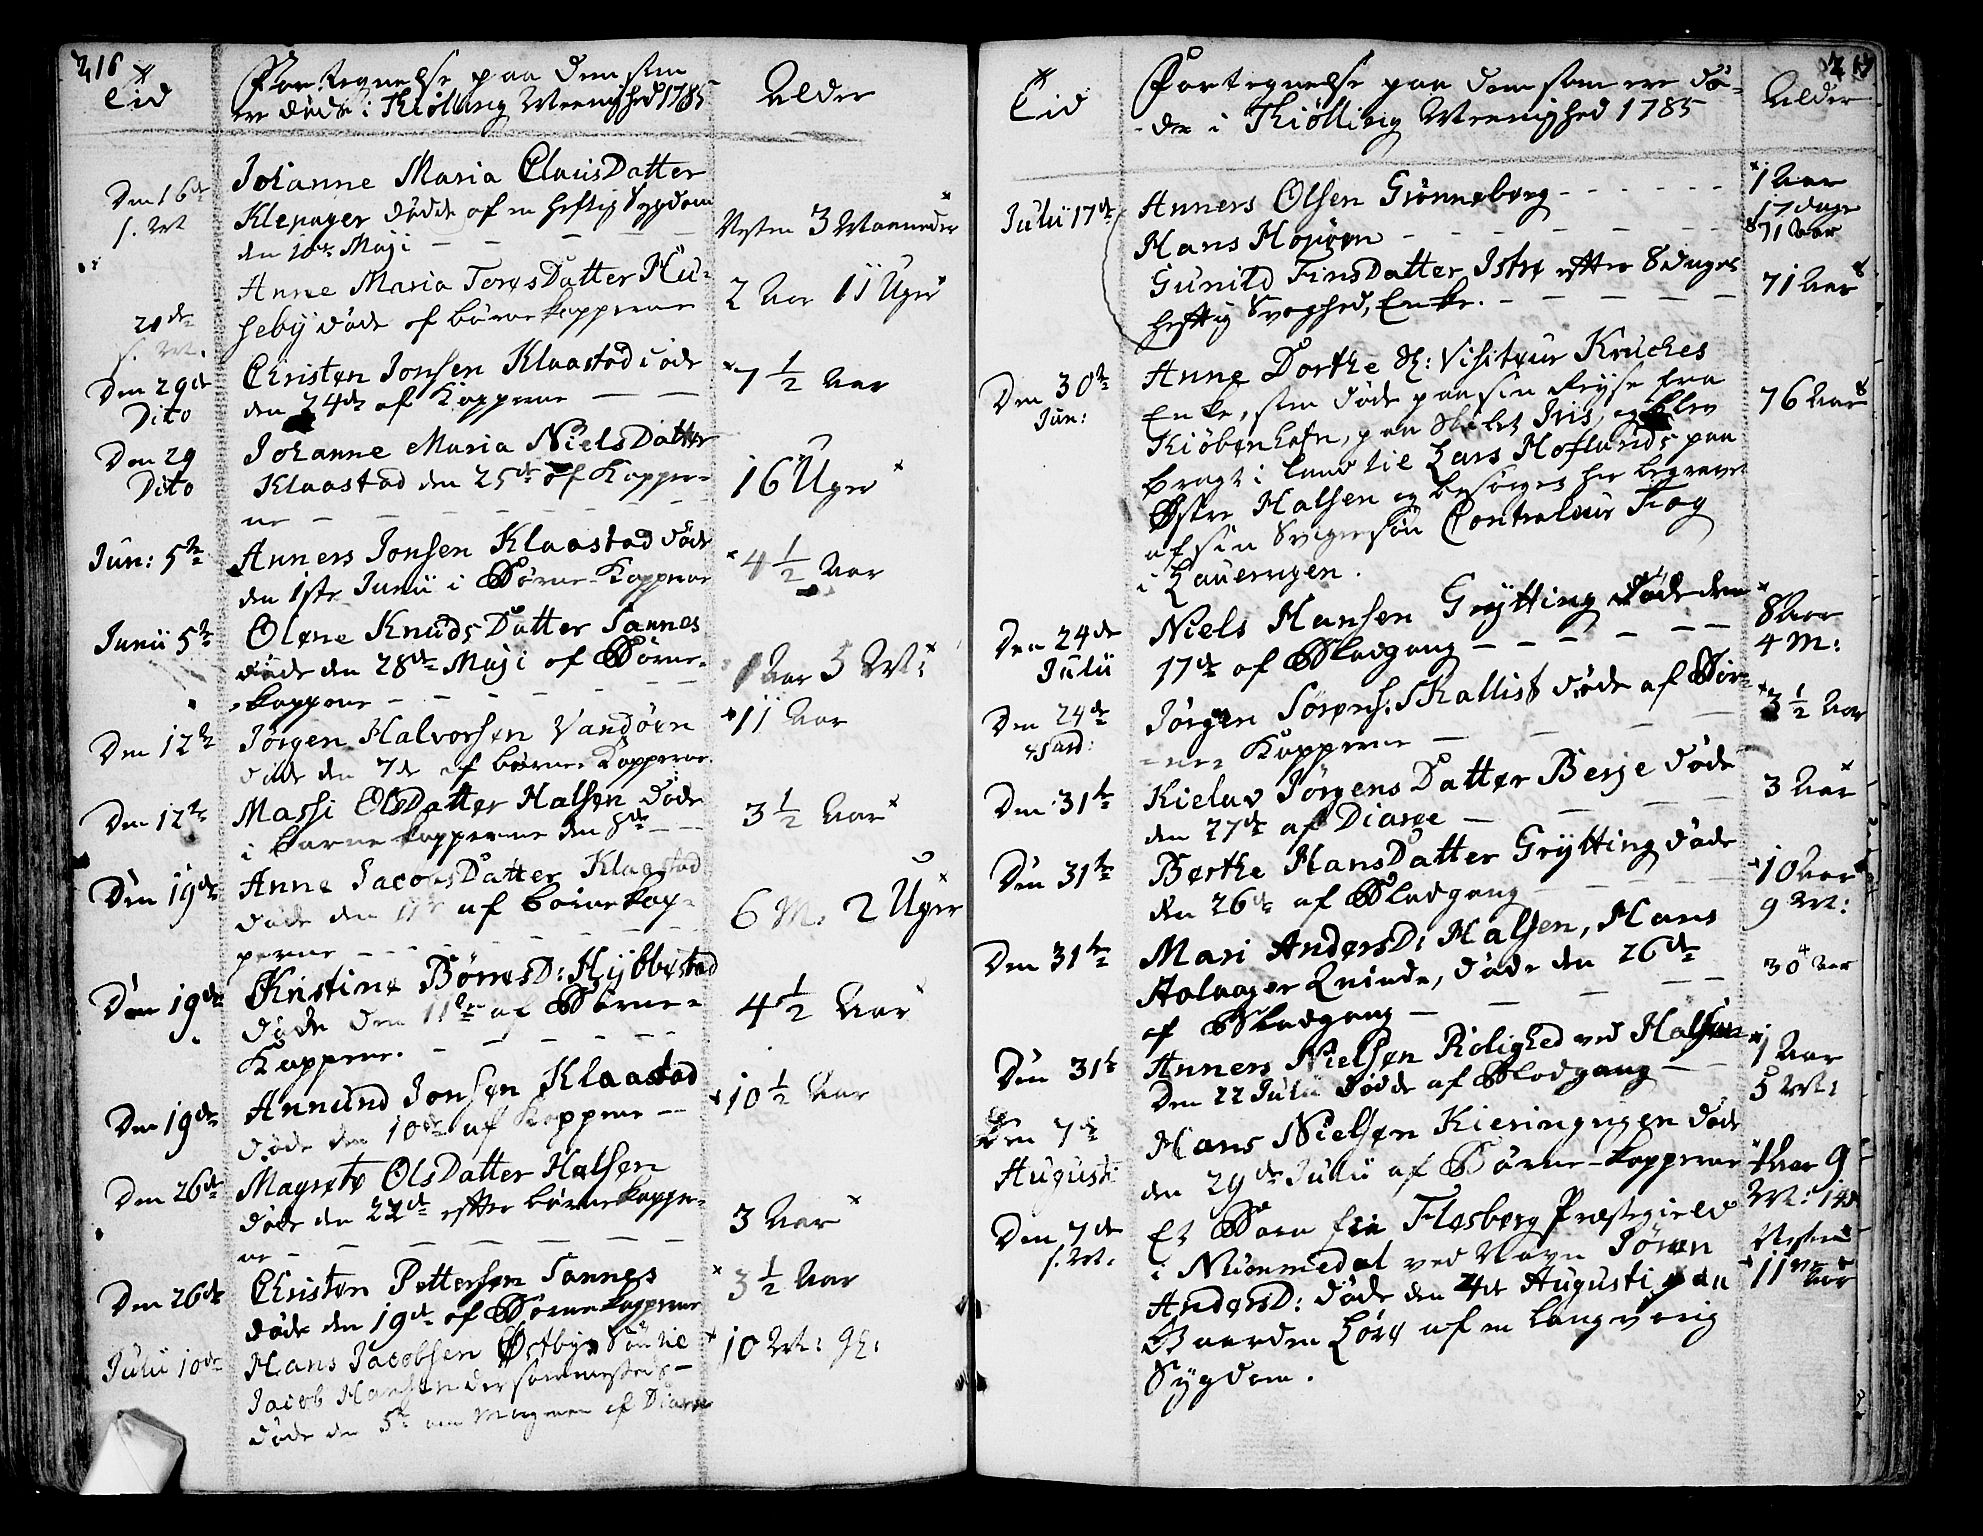 216
Tid
Fortegnelse paa dem som
ere døde i Kiølling Meenighed 1785
Alder
Den 16de
s. M
Johanne Maria ClausDatter
Klepager døde af en heftig Sygdom
den 10de Maji
Nesten 3 Maaneder
21de
s. M.
Anne Maria ToresDatter Hu-
seby døde af børnekopperne
2 Aar 11 Uger
Den 29de
Dito
Christen Jonsen Klaastad døde
den 24de af Kopperne
7 1/2 Aar
Den 29
Dito
Johanne Maria NielsDatter
Klaastad den 25de af Kopper-
ne
16 Uger
Jun: 5te
Anners Jonsen Klaastad døde
den 1ste Junii i Børne-Kopperne
4 1/2 Aar
Junii 5te
Olene KnudsDatter Sannes
døde den 28de Maji af Børne-
kopperne
1 Aar 5 M:
Den 12te
Jørgen Halvorsen Vandøen
døde den 7de af børne-Kopperne
11 Aar
Den 12te
Massi OlsDatter Halsen døde
i Børnekopperne den 8de
3 1/2 Aar
Den 19de
Anne JacobsDatter Klaastad
døde den 11te af børnekop-
perne
6 M. 2 Uger
Den 19de
Kristine BørresD: Hybbestad
døde den 11te af Børne-
Kopperne.
4 1/2 Aar
Den 19de
Annund Jonsen Klaastad
døde den 10de af Kopperne
10 1/2 Aar
Den 26de
Magrete OlsDatter Halsen
døde den 22de efter børnekopper-
ne
3 Aar
Den 26de
Christen Pettersen Sannes
døde den 19de af Børnekopperne
3 1/2 Aar
Julii 10de
Hans Jacobsen Østbye Søn til
Jacob Hansen dersammesteds
døde den 5te om Morgenen af Diaree
10 M:
217
Tid
Fortegnelse paa dem som ere dø-
de i Kiølling Meenighed 1785
Alder
Julii 17de
Anners Olsen Grønneberg
1 Aar
17 dage
Hans
71 Aar
Gunild FinsDatter Istre efter 8 dages
heftig Svaghed, Enke.
71 Aar
Den 30te
Jun:
Anne Dorthe Sl: Visiteur Kruckes
Enke, som døde paa sin Reyse fra
Kiøbenhafn, paa Skibet Iris, og blev
bragt i land til Lars Hoflunds paa
Østre Halsen og besørges her begravet
af sin Svigersøn Controleur
i Lauervigen.
76 Aar
Den 24de
Julii
Niels Hansen Grytting døde den
17de af Blodgang
8 Aar
4 M:
Den 24de
Jørgen Sørens: Skallist døde af Bør-
ne-Kopperne
3 1/2 Aar
Den 31te
Kielav JørgensDatter Berje døde
den 27de af Diaree
3 Aar
Den 31te
Berthe HansDatter Grytting døde
den 26de af Blodgang
10 Aar
9 M:
Den 31te
Mari AndersD: Halsen, Hans
Holaager Qvinde, døde den 26de
af Blodgang
30 Aar
Den 31te
Anners Nielsen Rolighed ved Halsen
Den 22 Julii døde af Blodgang
1 Aar
5 M:
Den 7de
Augusti
Hans Nielsen Kieringvigen døde
den 29de Julii af Børne-kopperne
Aar 9
M:
Den 7de
s. M.
Et Barn fra Flesberg Præstegield
i Nummedal ved Navn Jøren
AndersD: døde den 4de Augusti paa
Gaarden Løve af en langvarig
Sygdom.
Nesten
11 Aar